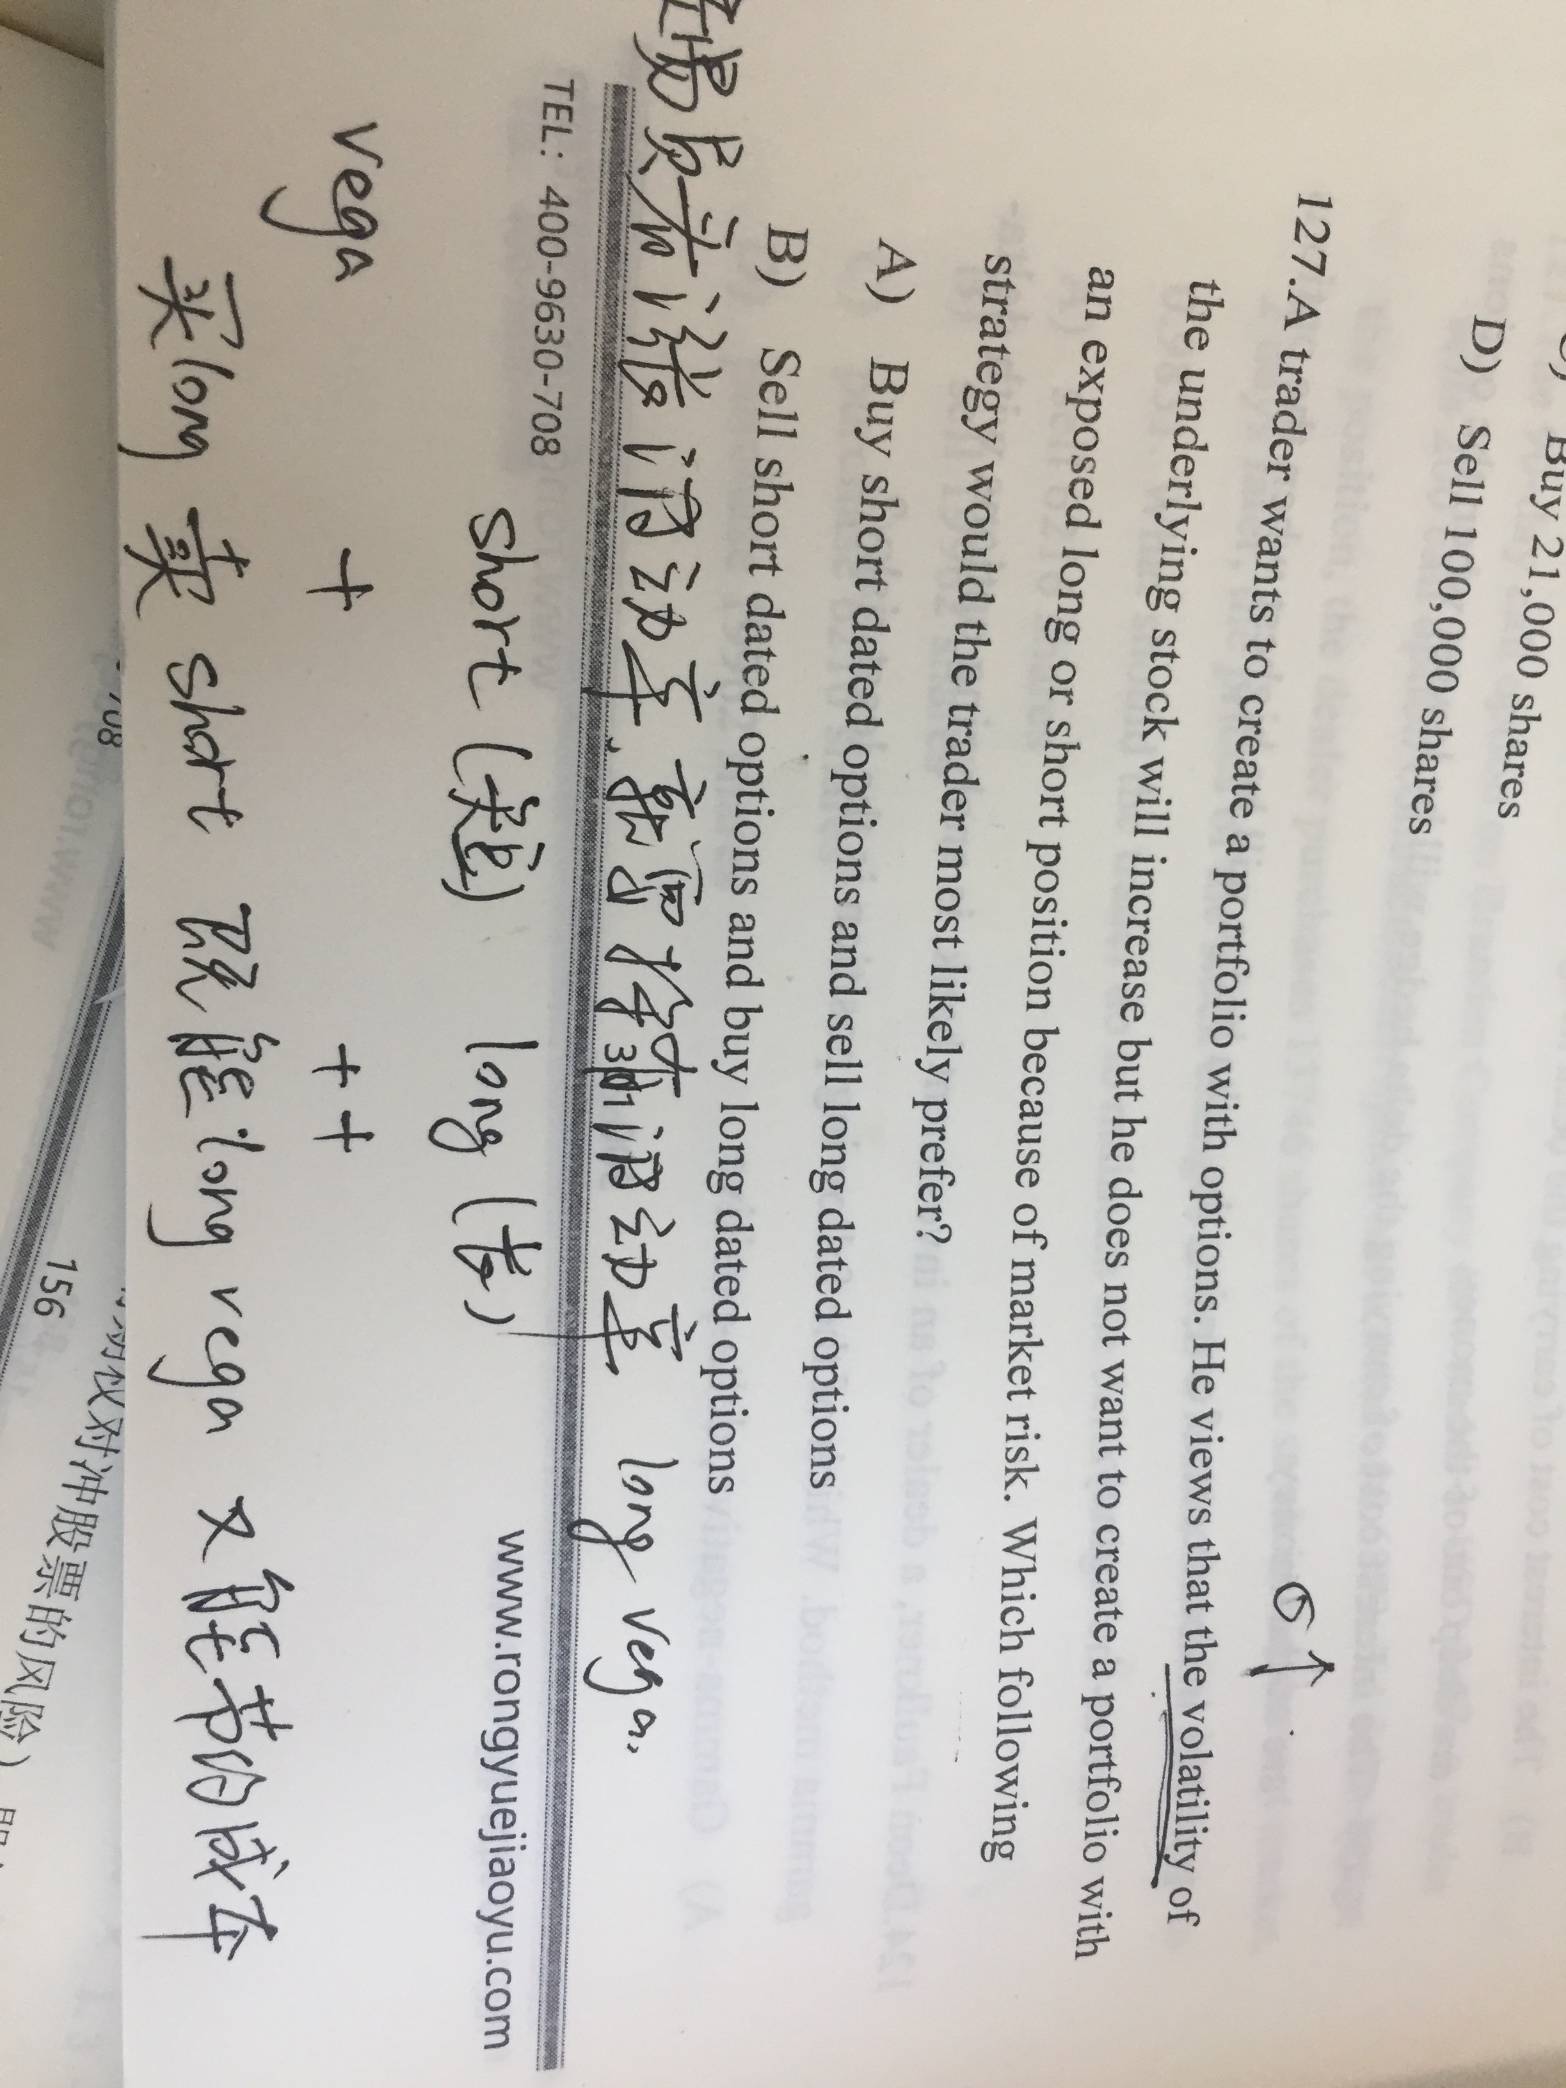 Buy 21,000 shares
D) Sell 100,000 shares
127.A trader wants to create a portfolio with options. He views that the volatility of
the underlying stock will increase but he does not want to create a portfolio with
an exposed long or short position because of market risk. Which following
strategy would the trader most likely prefer?
A) Buy short dated options and sell long dated options
B) Sell short dated options and buy long dated options
σ↑
易员看涨波动率，就需持有 波动率 long vega,
31
TEL: 400-9630-708
www.rongyuejiaoyu.com
short (短) long (长)
vega + ++
买long 卖 short 既能 long vega 又能节约成本
708
156
期权对冲股票的风险）